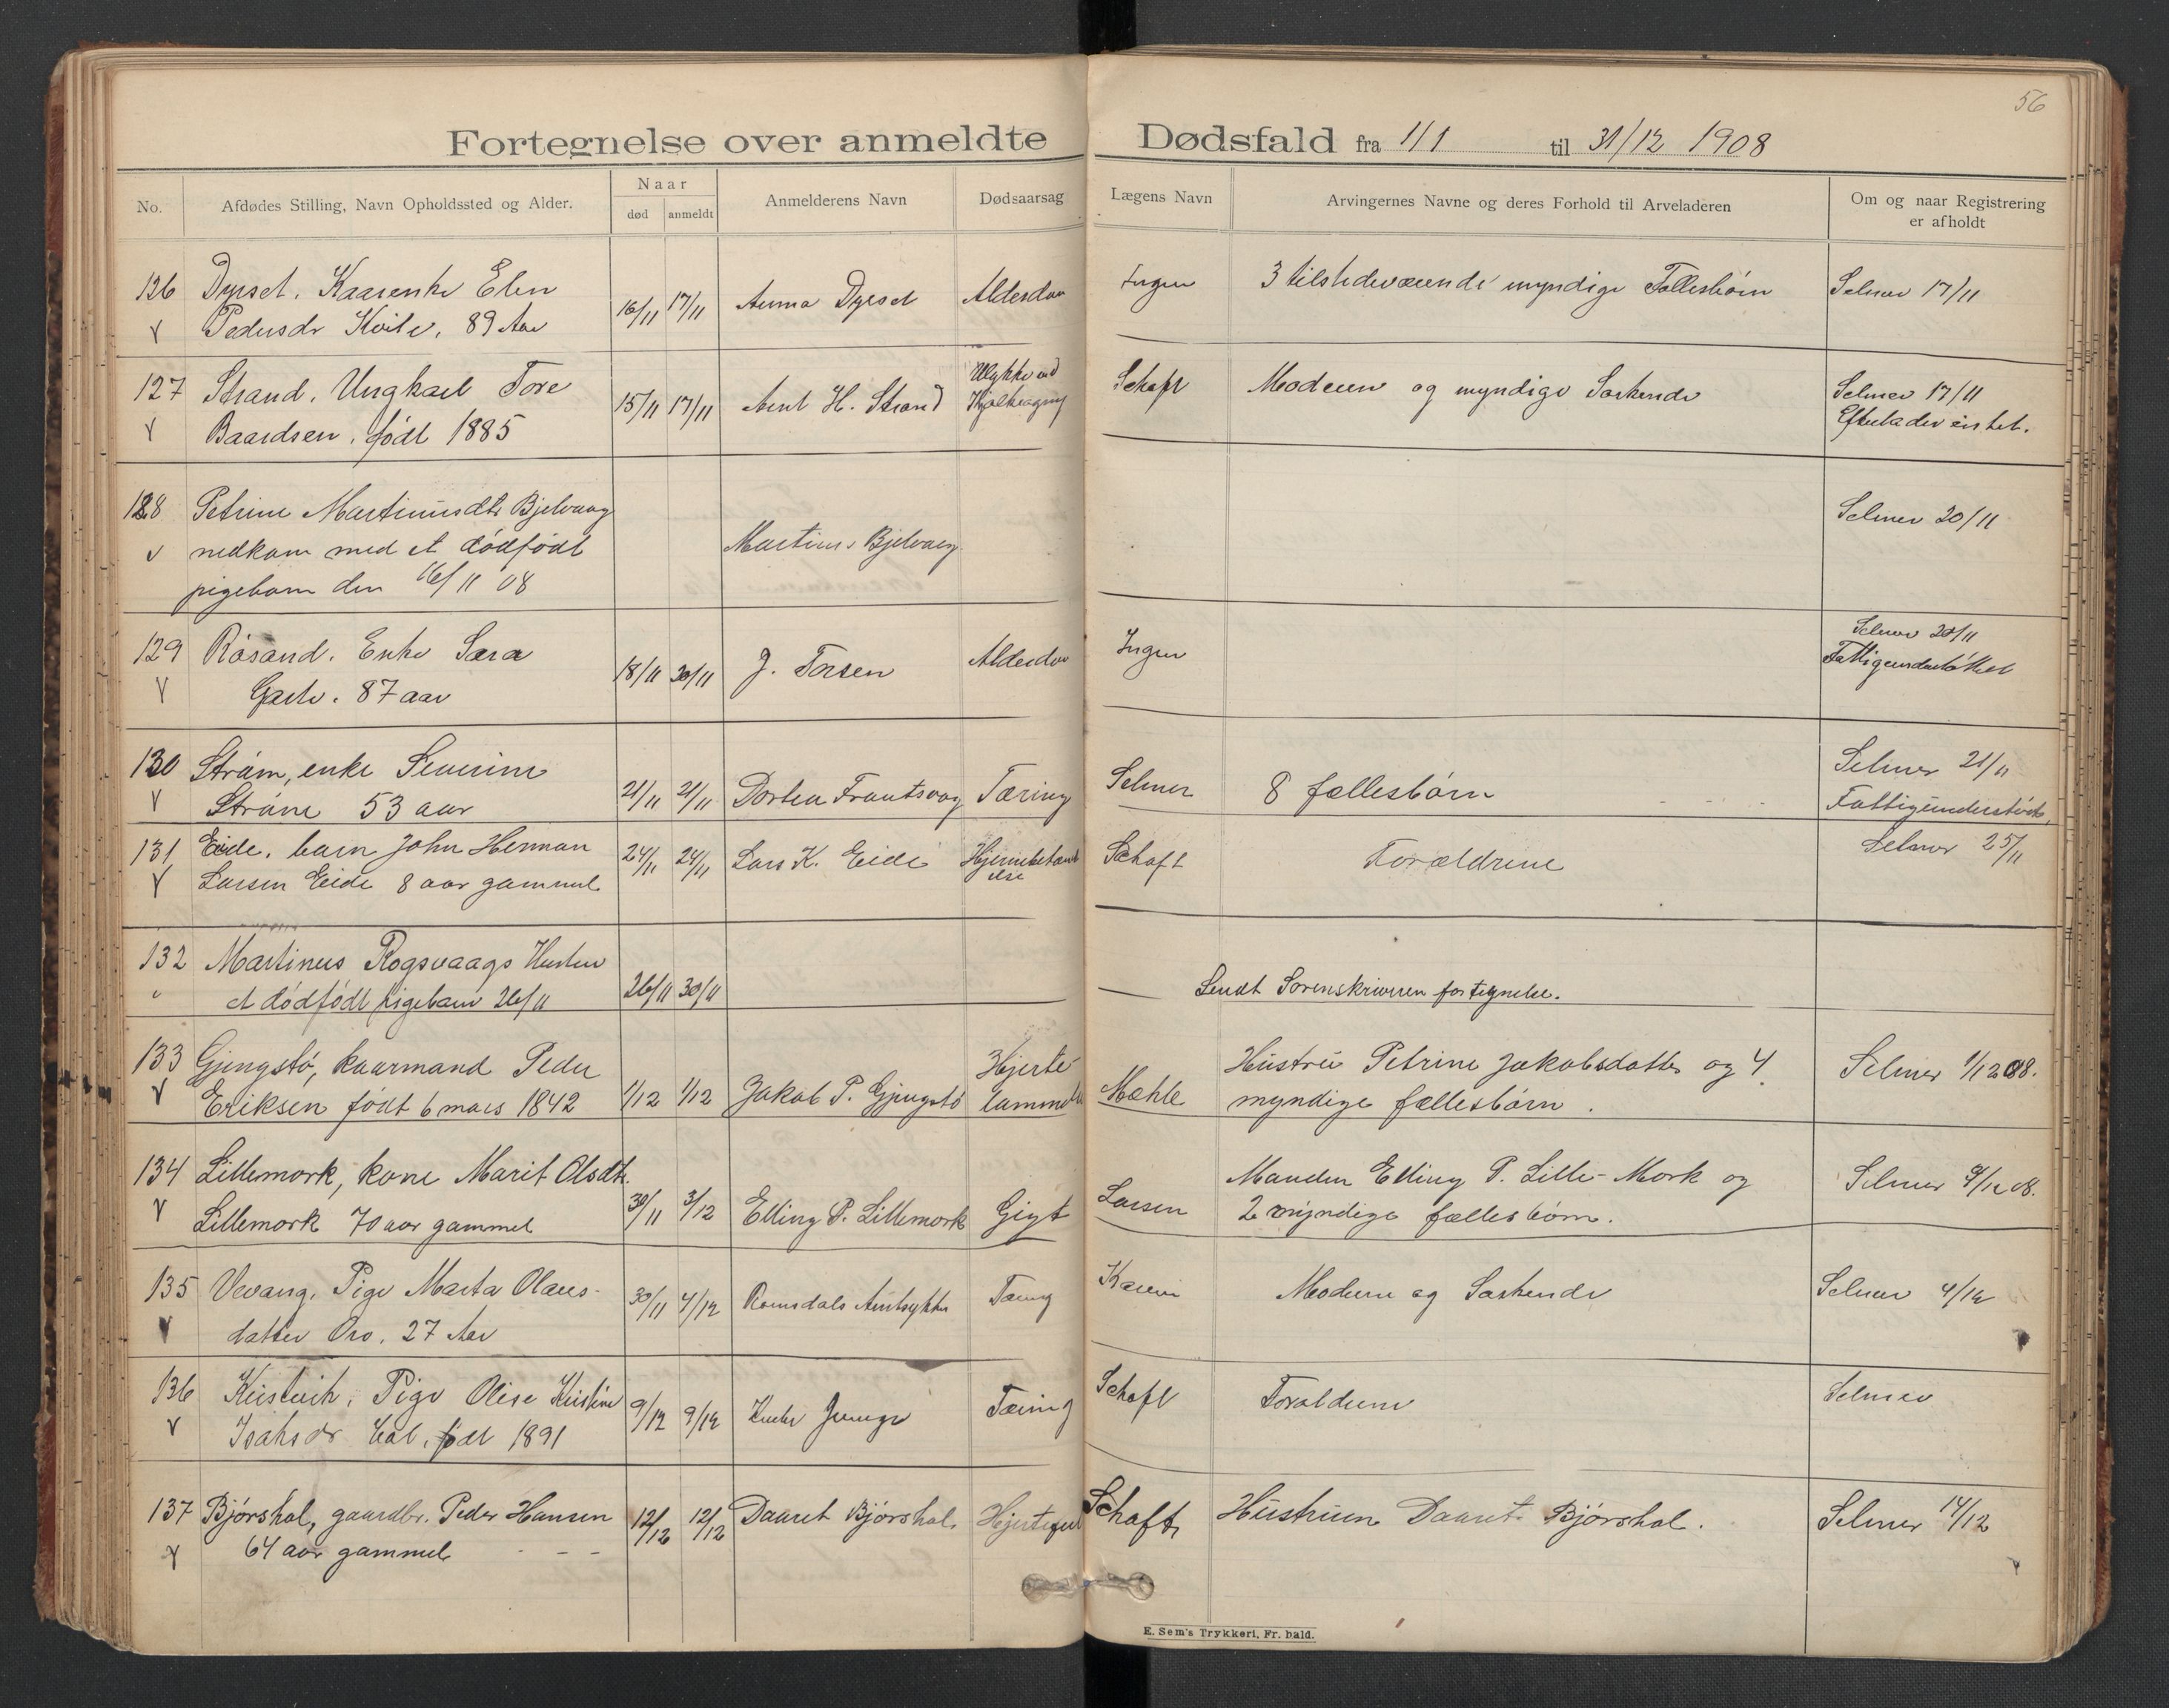 56
Fortegnelse over anmeldte Dødsfald fra 1/1 til 31/12 1908
No.
Afdødes Stilling, Navn Opholdssted og Alder.
Naar
død
anmeldt
Anmelderens Navn
Dødsaarsag
Lægens Navn
Arvingernes Navne og deres Forhold til Arveladeren
Om og naar Registrering
er afholdt
126 Dyrset. Kaarenke Elen
Pedersdr Kvile. 89 Aar
16/11 17/11 Anna Dyrset Alderdom Ingen 3 tilstedeværende myndige Fællesbørn Selmer 17/11
127 Strand. Ungkarl Tore
Baardsen. født 1885
15/11 17/11 Arnt H. Strand
Ulykke ved
Schaft Moderen og myndige Søskende
Selmer 17/11
Efterlader intet.
128 Petrine Martinusdtr Bjelvaag
v nedkom med et dødfødt
pigebarn den 16/11 08
Martinus Bjelvaag
Selmer 20/11
129 Røsand. Enke Sara
Garte. 87 aar
18/11 20/11 J. Torsen Alderdom Ingen
Selmer 20/11
Fattigunderstøttet
130 Strøm, enke Severine
Strøm 53 aar
21/11 21/11 Dortea Frantsvag Tæring Selmer 8 fællesbørn
Selmer 21/11
Fattigunderstøtt.
131 Eide. barn John Herman
Larsen Eide 8 aar gammel
24/11 24/11 Lars K. Eide Hjernebetænd
else
Schaft Forældrene Selmer 25/11
132 Martinus Rogsvaags Hustru
et dødfødt pigebarn 26/11
26/11 30/11
Sendt Sorenskriveren fortegnelse.
133 Gjengstø, kaarmand Peder
Eriksen født 6 mars 1842
1/12 1/12 Jakob P. Gjengstø
Hjerte-
lammelse
Mæhle
Hustru Petrine Jakobsdatter og 4
myndige fællesbørn.
Selmer 1/12 08.
134 Lillemork, kone Marit Olsdtr.
Lillemork 70 aar gammel
30/11 3/12 Elling P. Lillemork Gigt Larsen
Manden Elling P. Lille-Mork og
2 myndige fællesbørn.
Selmer 4/12 08.
135 Vevang. Pige Marta Olaus-
datter Øro. 27 Aar
30/11 4/12 Romsdals Amtssykhus Tæring
Moderen og Søskende Selmer 4/12
136 Kristvik. Pige Olise Kristine
Isaksdr født 1891
9/12 9/12 Tæring Schaft Forældrene Selmer
137 Bjørshol, gaardbr. Peder Hansen
64 aar gammel
12/12 12/12 Daaret Bjørshol. Hjertefeil Schaft Hustruen Daaret Bjørshol. Selmer 14/12
E. Sem's Trykkeri, Fr.hald.